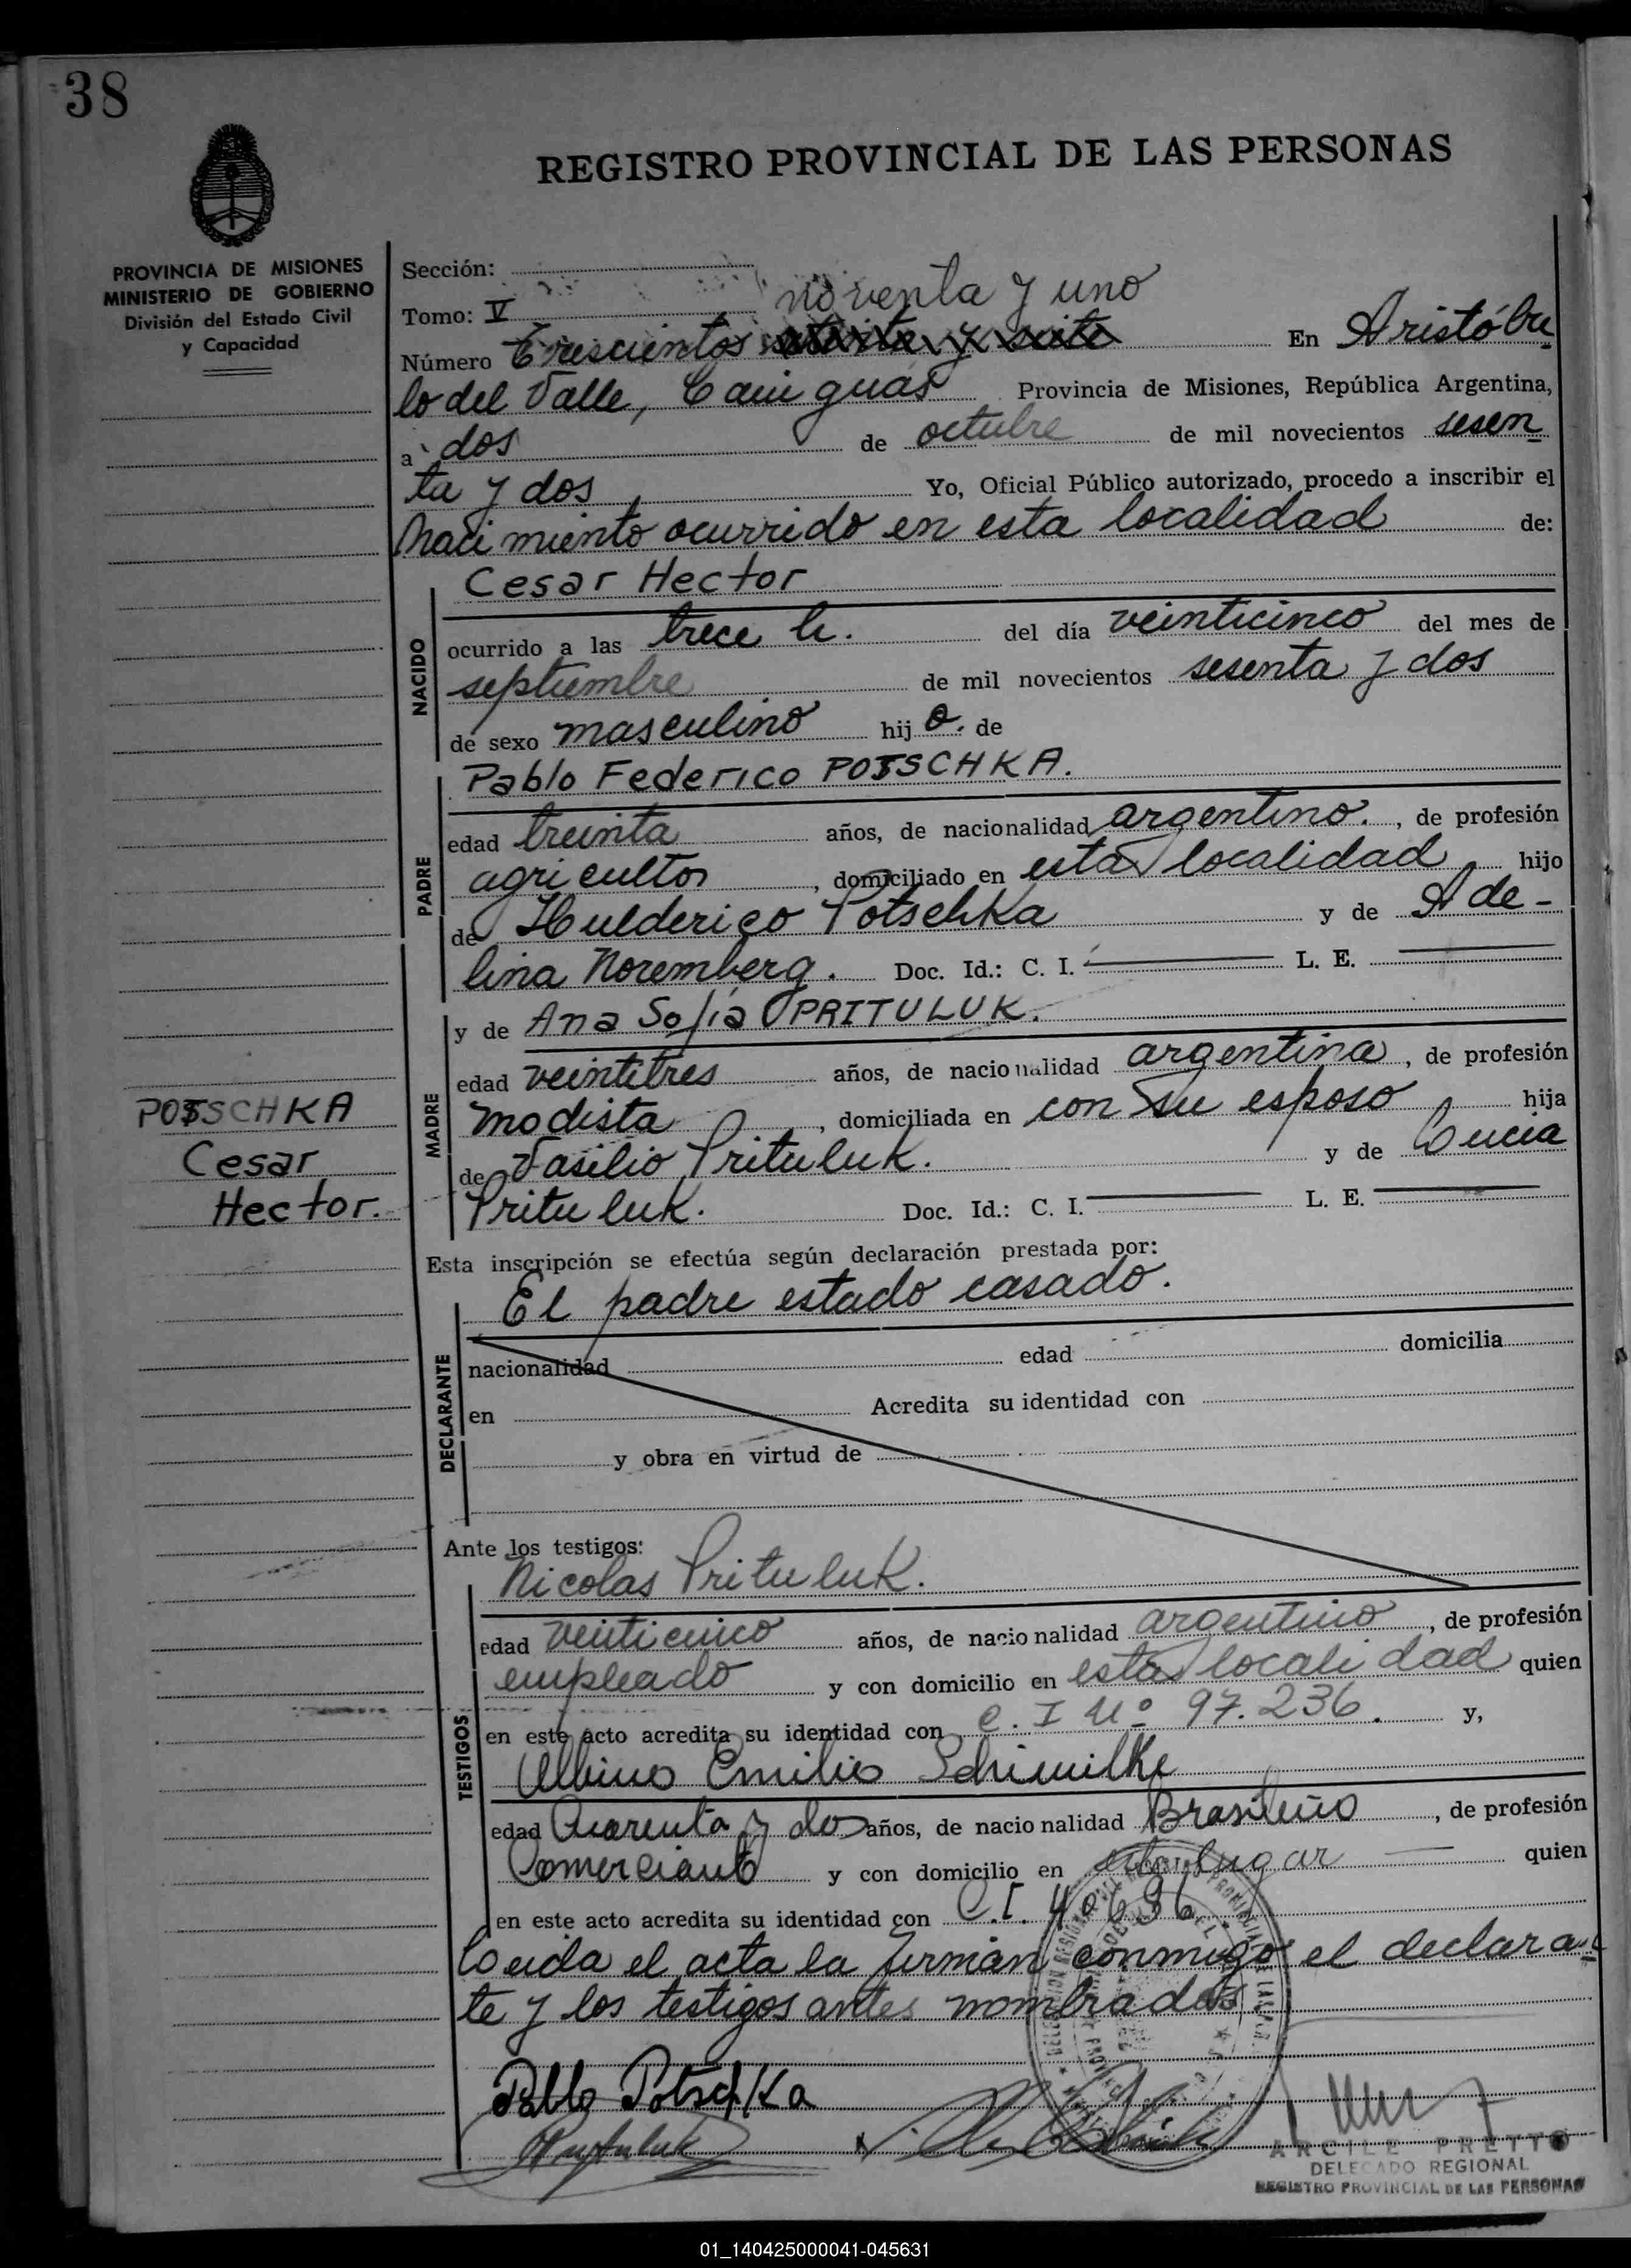 38
REGISTRO PROVINCIAL DE LAS PERSONAS
PROVINCIA DE MISIONES
MINISTERIO DE GOBIERNO
División del Estado Civil
y Capacidad
Sección:
Tomo: V noventa y uno
Número Trescientos En Aristóbu
lo del Valle, Cainguás Provincia de Misiones, República Argentina,
a dos de octubre de mil novecientos sesen
ta y dos Yo, Oficial Público autorizado, procedo a inscribir el
nacimiento ocurrido en esta localidad de:
NACIDO
Cesar Hector
ocurrido a las trece h. del día veinticinco del mes de
septiembre de mil novecientos sesenta y dos
de sexo masculino hijo. de
PADRE
Pablo Federico POTSCHKA.
edad treinta años, de nacionalidad argentino., de profesión
agricultor, domiciliado en esta localidad hijo
de Hulderico Potschka y de Ade-
lina Noremberg. Doc. Id.: C. I. L. E.
MADRE
y de Ana Sofía PRITULUK.
edad veintitres años, de nacionalidad argentina, de profesión
modista, domiciliada en con su esposo hija
de Vasilio Prituluk. y de Lucia
Prituluk. Doc. Id.: C. I. L. E.
POTSCHKA
Cesar
Hector.
Esta inscripción se efectúa según declaración prestada por:
DECLARANTE
El padre estado casado.
nacionalidad edad domicilia
en Acredita su identidad con
y obra en virtud de
Ante los testigos:
TESTIGOS
Nicolas Prituluk.
edad veinticinco años, de nacionalidad argentino, de profesión
empleado y con domicilio en esta localidad quien
en este acto acredita su identidad con C. I Nº 97.236. y,
Albino Emilio Schimilke
edad Cuarenta y dos años, de nacionalidad Brasileño, de profesión
Comerciante y con domicilio en este lugar quien
en este acto acredita su identidad con C.I. 40696
Leida el acta la firman conmigo el declaran
te y los testigos antes nombrados
Pablo Potschka
ARCILE PRETTO
DELEGADO REGIONAL
REGISTRO PROVINCIAL DE LAS PERSONAS
01_140425000041-045631